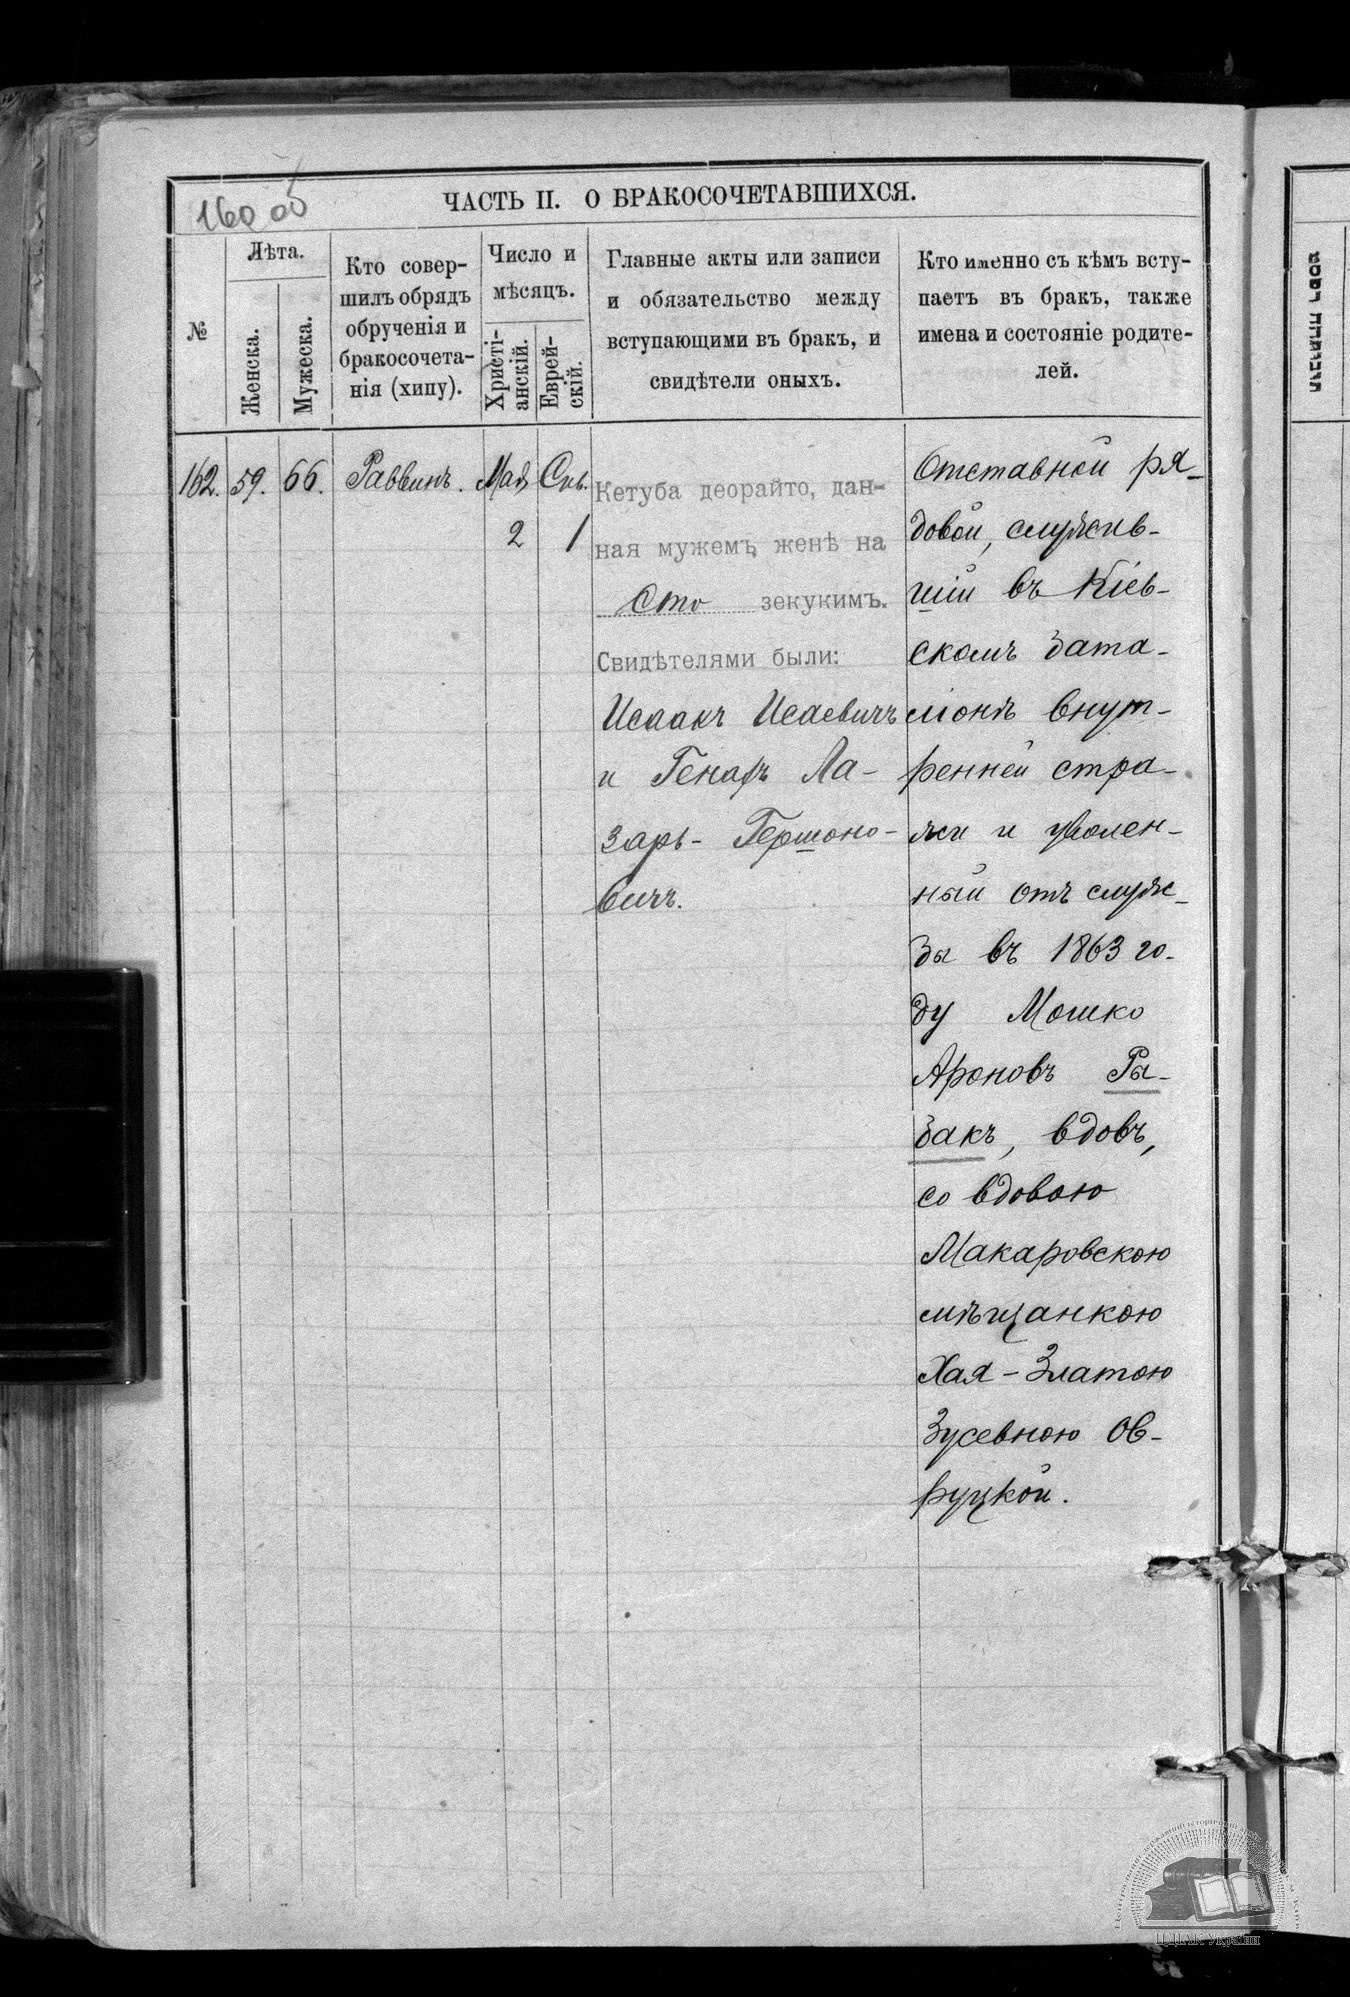 160 об
ЧАСТЬ II. О БРАКОСОЧЕТАВШИХСЯ.
№
Лѣта.
Женска.
Мужеска.
Кто совер-
шилъ обрядъ
обрученія и
бракосочета-
нія (хипу).
Число и
мѣсяцъ.
Христі-
анскій.
Еврей-
скій.
Главные акты или записи
и обязательство между
вступающими въ бракъ, и
свидѣтели оныхъ.
Кто именно съ кѣмъ всту-
паетъ въ бракъ, также
имена и состояніе родите-
лей.
162. 59. 66. Раввинъ. Мая Сив.
2 1
Кетуба деорайто, дан-
ная мужемъ, женѣ на
Сто зекукимъ.
Свидѣтелями были:
Исаакъ Исаевичъ
и Генахъ Ла-
зарь-Гершоно-
вичъ.
Отставной ря-
довой, служив-
шій въ Кіев-
скомъ бата-
ліонѣ внут-
ренней стра-
жи и уволен-
ный отъ служ-
бы въ 1863 го-
ду Мошко
Ароновъ Ры-
бакъ, вдовъ,
со вдовою
Макаровскою
мѣщанкою
Хая-Златою
Зусевною Ов-
руцкой.
ЦДІАК України